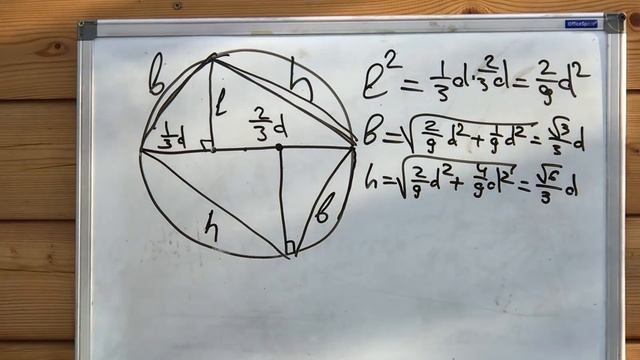 OfficeSpace
b
h
l
1/3 d
2/3 d
h
b
l² = 1/3 d · 2/3 d = 2/9 d²
b = √(2/9 d² + 1/9 d²) = √3/3 d
h = √(2/9 d² + 4/9 d²) = √6/3 d